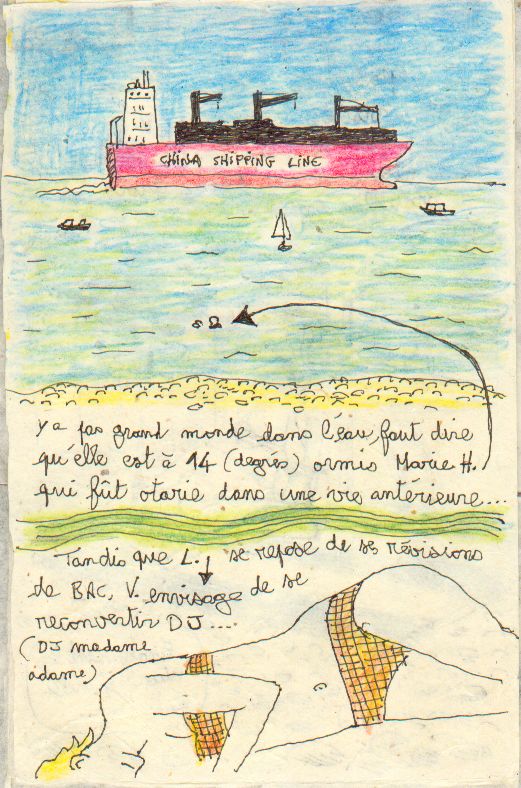 CHINA SHIPPING LINE
y a pas grand monde dans l'eau, faut dire
qu'elle est à 14 (degrés) ormis Marie H.
qui fût otarie dans une vie antérieure...
Tandis que L. se repose de ses révisions
de BAC, V. envisage de se
reconvertir DJ....
(DJ madame
adame)